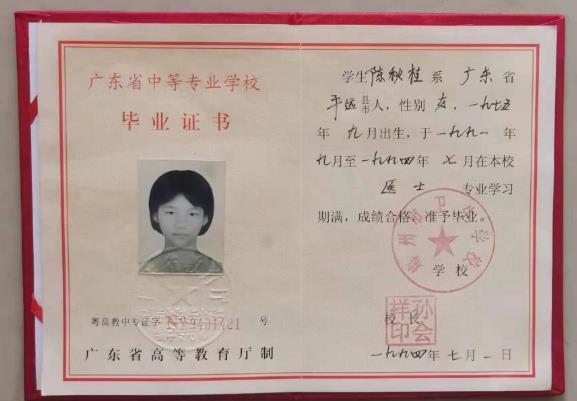 广东省中等专业学校
毕业证书
粤高教中专证字 号
广东省高等教育厅制
学生陈秋桂系 广东省
平远县市人,性别女,一九七五
年 九月出生,于一九九一 年
九月至一九九四年 七月在本校
医士 专业学习
期满,成绩合格,准予毕业。
州卫生学校
学校
校长
孙会祥印
一九九四年七月一日